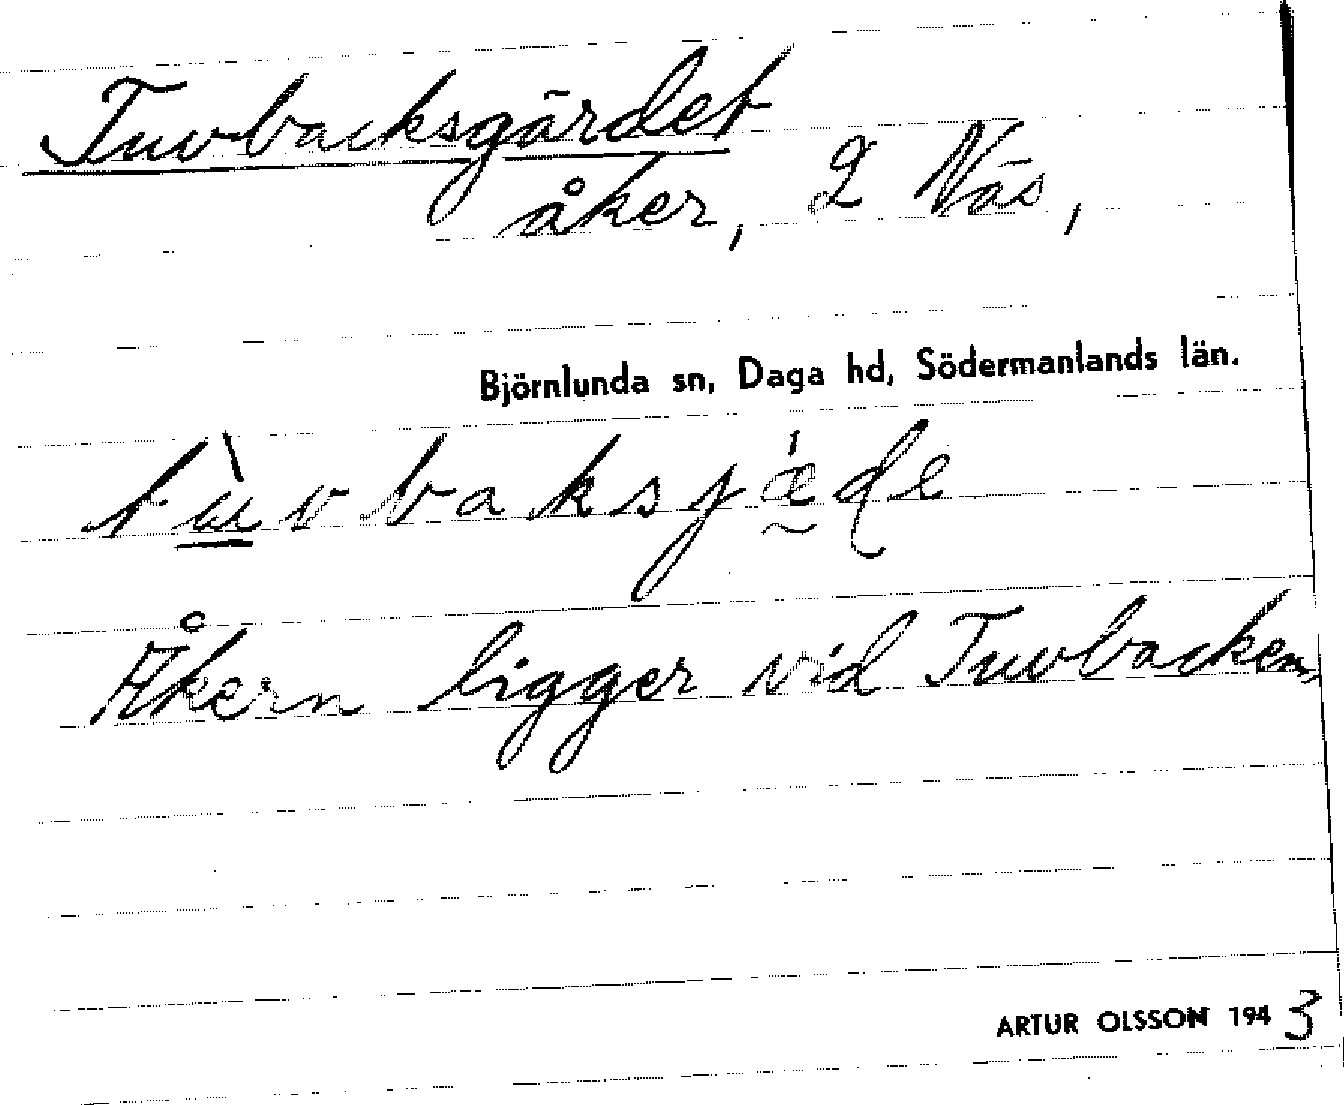 Tuvbacksgärdet
åker, 2 Näs,
Björnlunda sn, Daga hd, Södermanlands län.
tù̲vbaksjǽ̰de
Åkern ligger vid Tuvbacken,
ARTUR OLSSON 1943